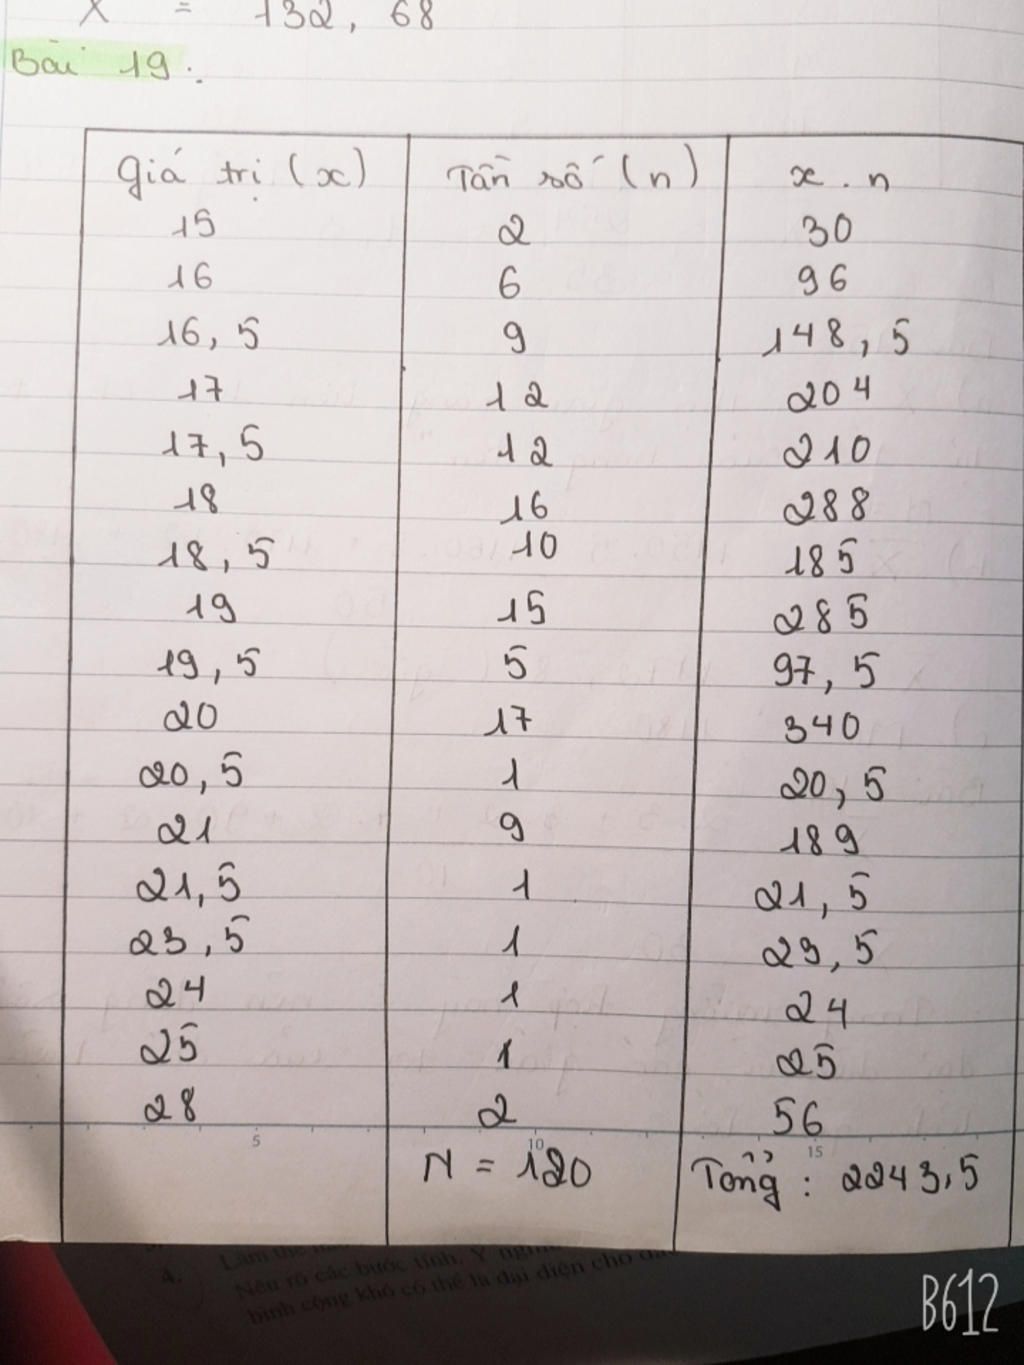 X = 132, 68
Bài 19:
Giá trị (x) Tần số (n) x. n
15 2 30
16 6 96
16, 5 9 148, 5
17 12 204
17, 5 12 210
18 16 288
18, 5 10 185
19 15 285
19, 5 5 97, 5
20 17 340
20, 5 1 20, 5
21 9 189
21, 5 1 21, 5
23, 5 1 23, 5
24 1 24
25 1 25
28 2 56
5 10 15
N = 120 Tổng : 2243,5
4. Làm thế
Nêu rõ các bước tính. Ý
bình cộng khó có thể là đại diện cho
B612